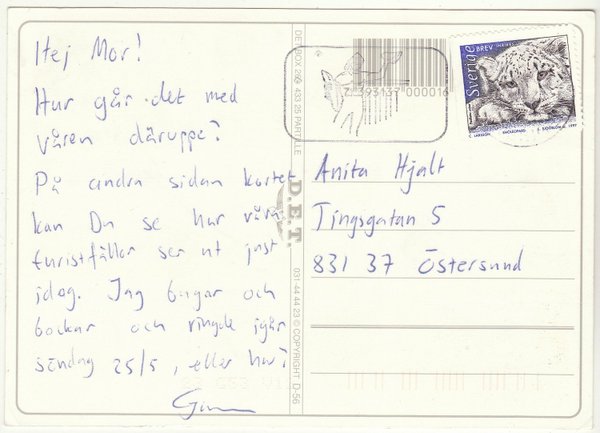 Hej Mor!
Hur går det med
våren däruppe?
På andra sidan kortet
kan Du se hur våra
turistfällor ser ut just
idag. Jag bugar och
bockar och ringde igår
söndag 25/5, eller hur?
DET BOX 269 433 25 PARTILLE
D.E.T.
031-44 44 23 © COPYRIGHT D-56
7 393137 000016
Sverige
BREV
C. LARSSON, SNÖLEOPARD, L. SJÖÖBLOM SC 1997
Anita Hjalt
Tingsgatan 5
831 37 Östersund